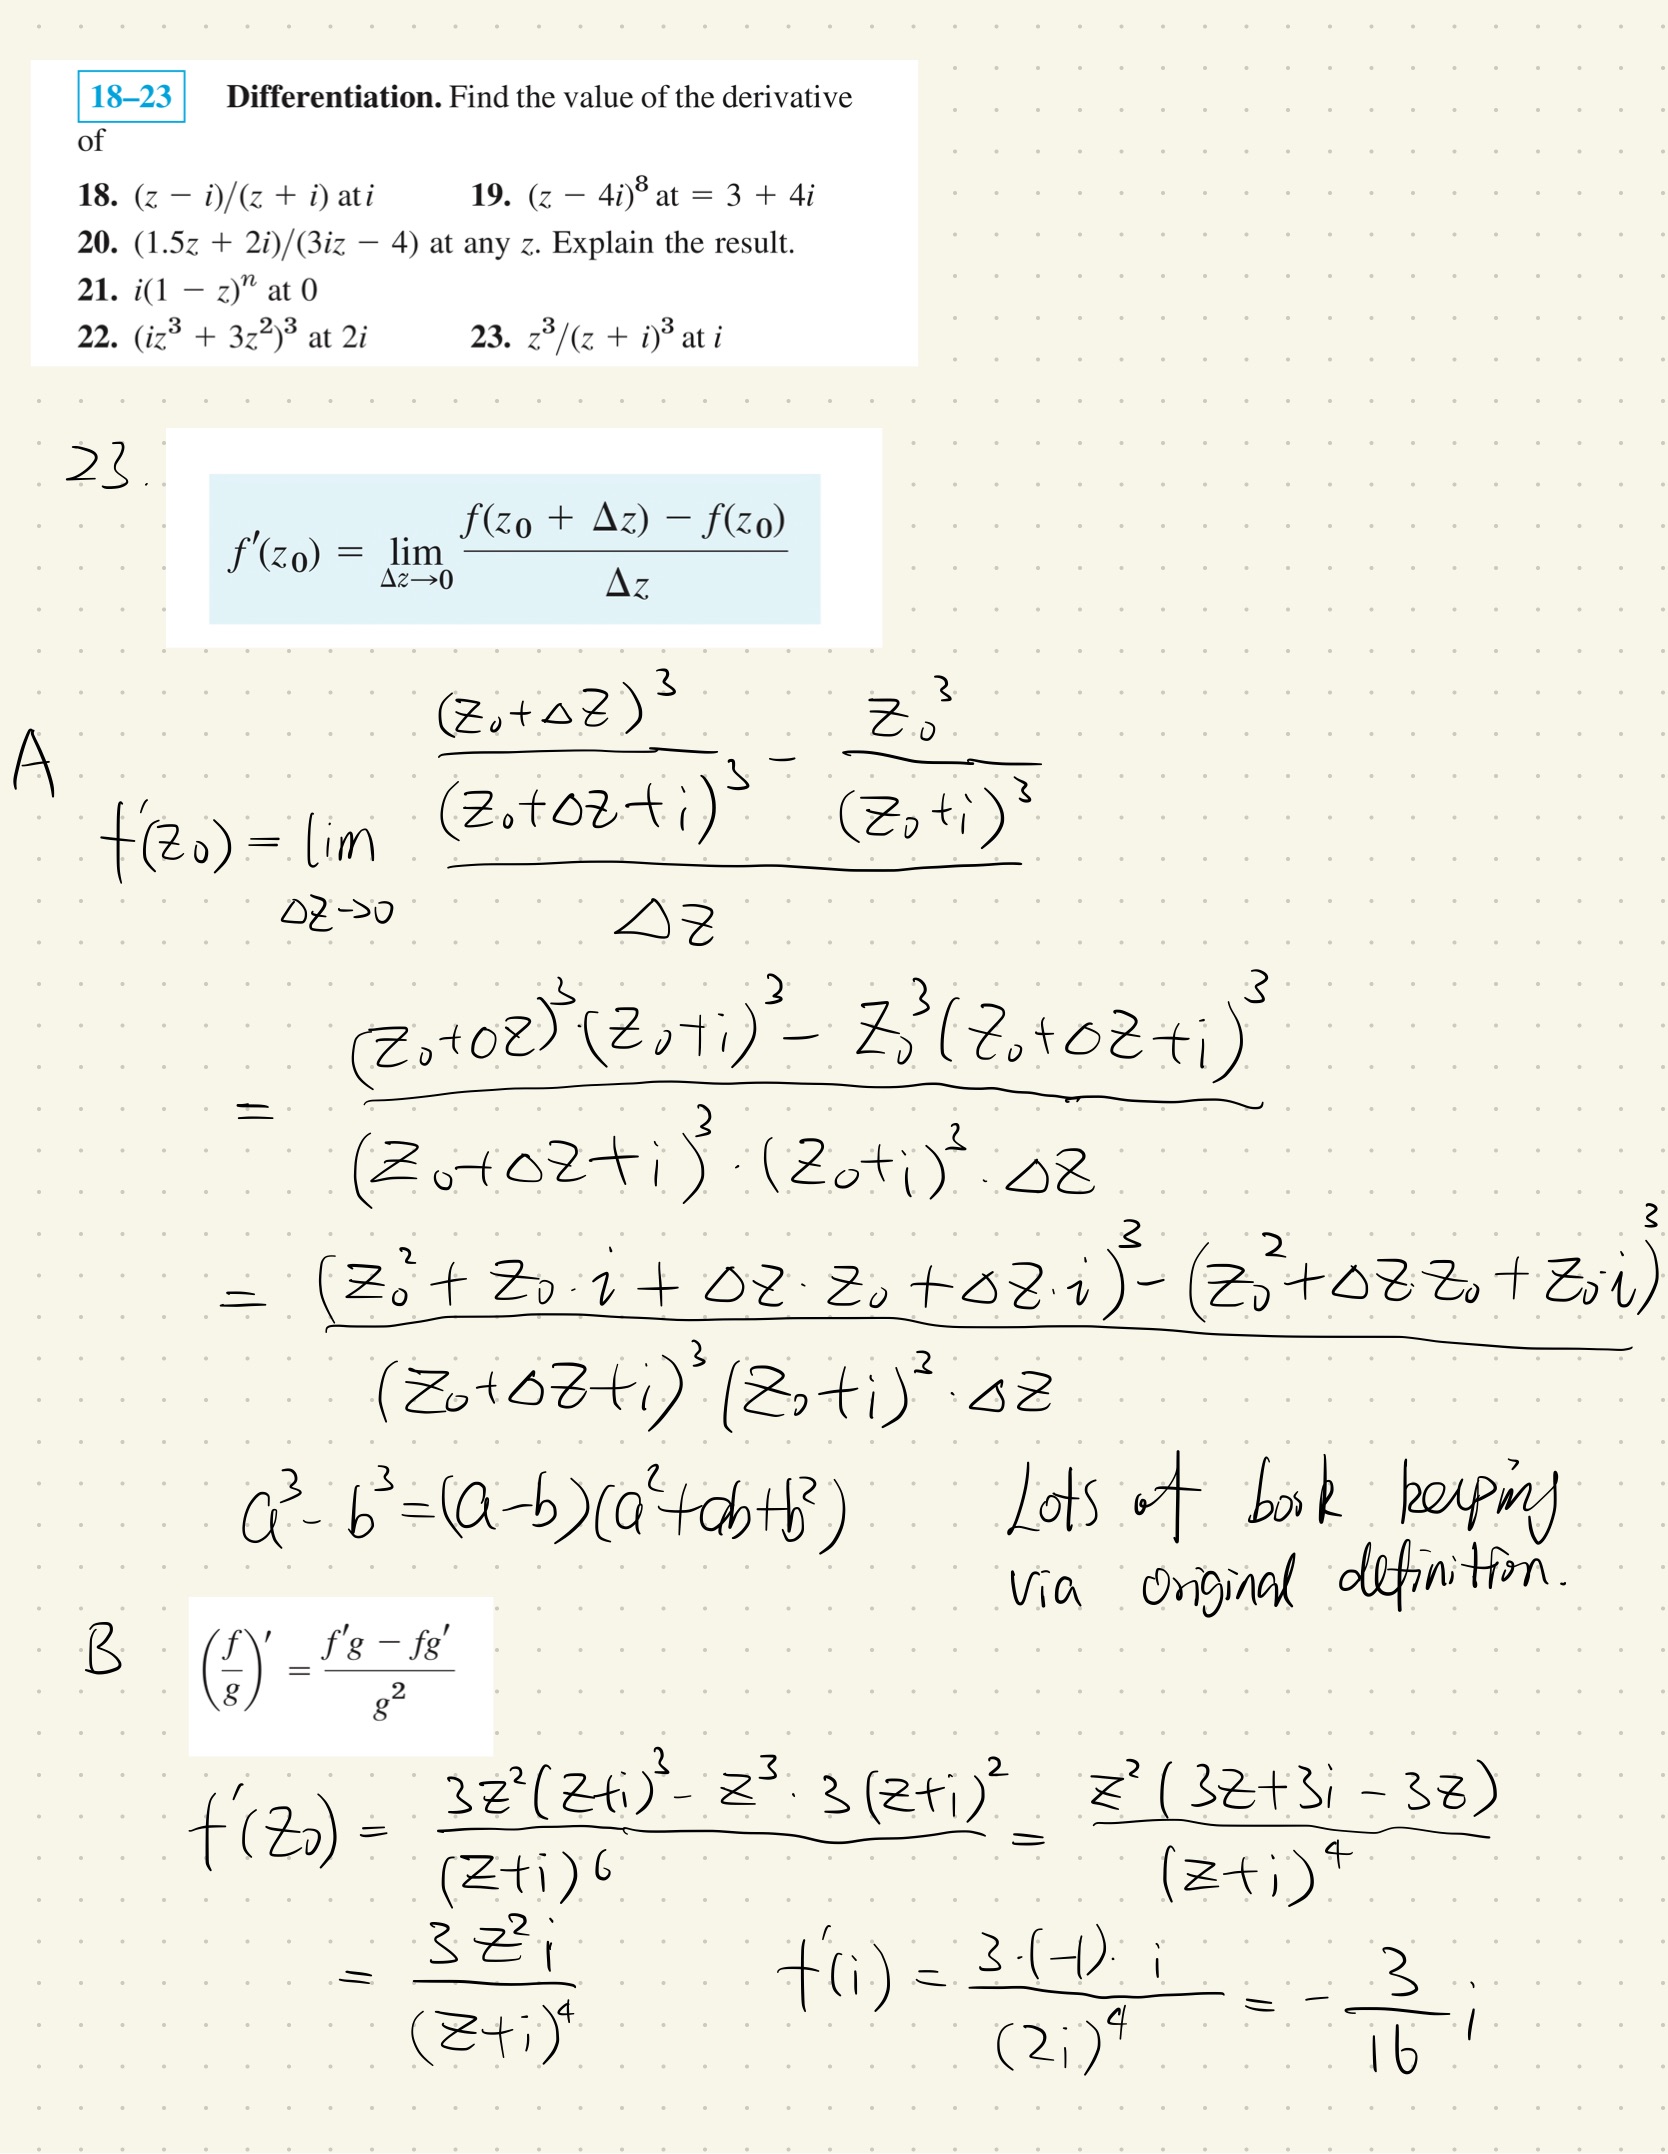 18–23 Differentiation. Find the value of the derivative
of
18. (z − i)/(z + i) at i 19. (z − 4i)⁸ at = 3 + 4i
20. (1.5z + 2i)/(3iz − 4) at any z. Explain the result.
21. i(1 − z)ⁿ at 0
22. (iz³ + 3z²)³ at 2i 23. z³/(z + i)³ at i
23.
f′(z₀) = lim_{Δz→0} (f(z₀ + Δz) − f(z₀)) / Δz
A
f′(z₀) = lim_{Δz→0} ((z₀+Δz)³/(z₀+Δz+i)³ − z₀³/(z₀+i)³) / Δz
= ((z₀+Δz)³·(z₀+i)³ − z₀³(z₀+Δz+i)³) / ((z₀+Δz+i)³·(z₀+i)³·Δz)
= ((z₀²+z₀·i+Δz·z₀+Δz·i)³ − (z₀²+Δz·z₀+z₀·i)³) / ((z₀+Δz+i)³(z₀+i)³·Δz)
a³−b³=(a−b)(a²+ab+b²) Lots of book keeping
via original definition.
B (f/g)′ = (f′g − fg′)/g²
f′(z₀) = (3z²(z+i)³ − z³·3(z+i)²)/(z+i)⁶ = z²(3z+3i−3z)/(z+i)⁴
= 3z²i/(z+i)⁴ f′(i) = 3·(−1)·i/(2i)⁴ = −3/16 i